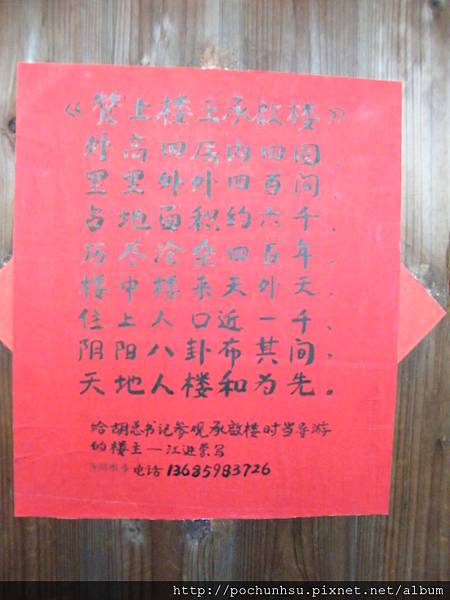 《赞土楼王承启楼》
外高四层内四圈
里里外外四百间
占地面积约六千、
历尽沧桑四百年、
楼中楼来天外天、
住上人口近一千、
阴阳八卦布其间，
天地人楼和为先。
给胡总书记参观承啟楼时当导游
的楼主—江进荣写
电话13685983726
http://pochunhsu.pixnet.net/album